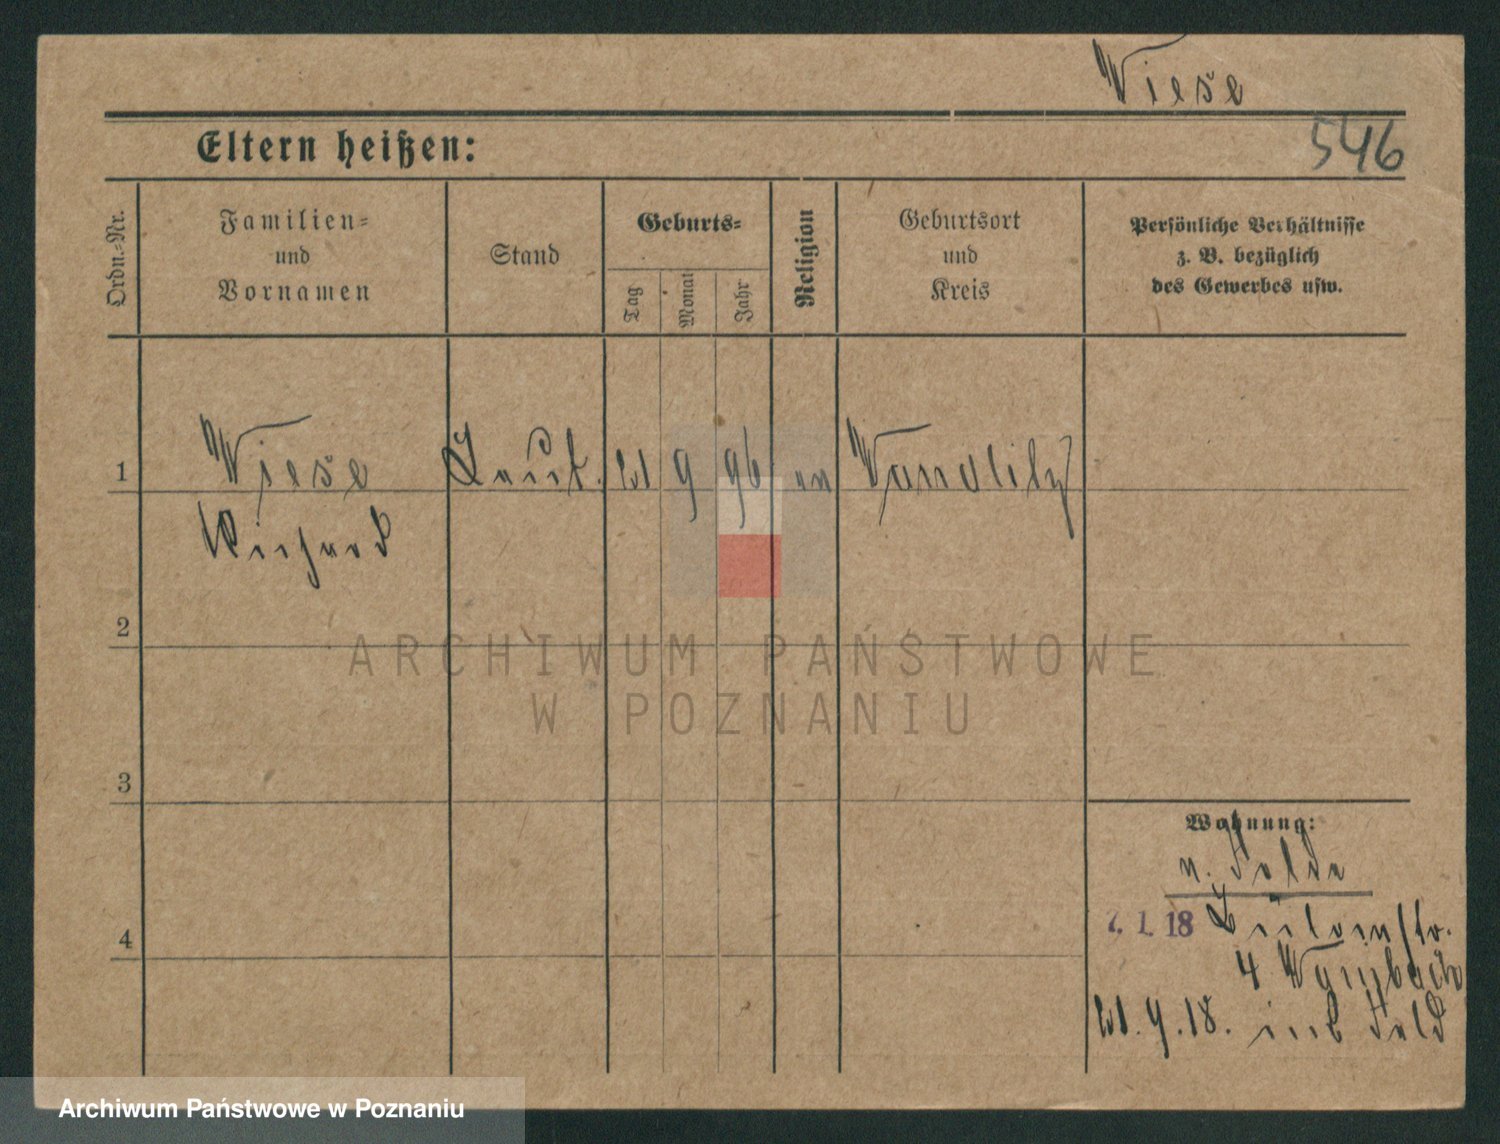 Wiese
546
Eltern heißen:
Ordn.-Nr.
Familien- und Vornamen
Stand
Geburts-
Tag
Monat
Jahr
Religion
Geburtsort und Kreis
Persönliche Verhältnisse
z. B. bezüglich
des Gewerbes usw.
1
Wiese
Leut.
21
9
96
ev
Wandlitz
Richard
2
3
4
Wohnung:
v. Felde
1. 18
4
21. 9. 18. ins Feld
ARCHIWUM PAŃSTWOWE
W POZNANIU
Archiwum Państwowe w Poznaniu